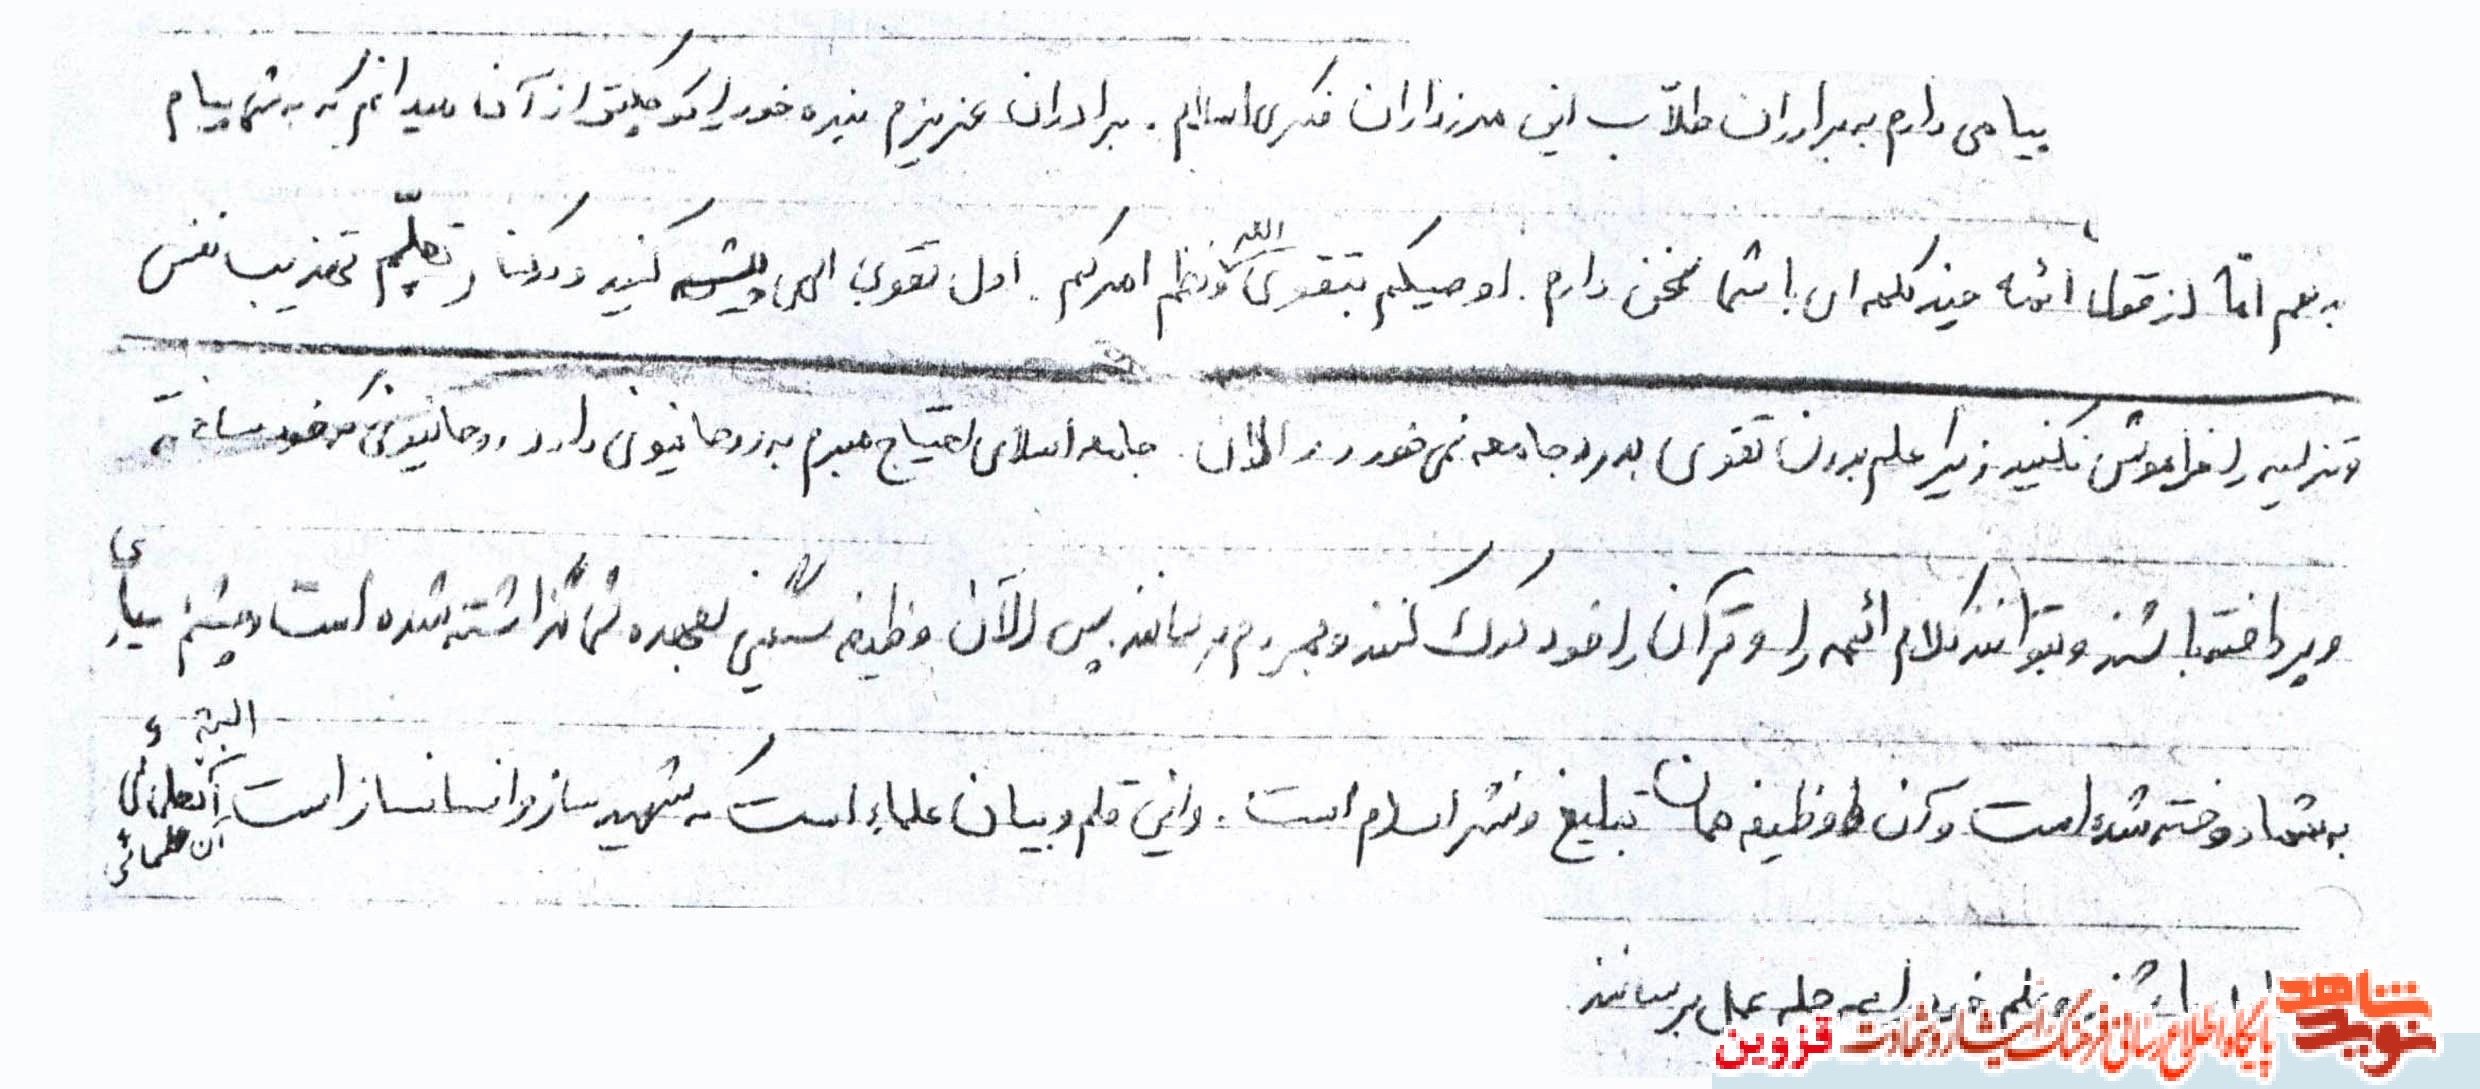 پیامی دارم به برادران طلاّب این مرزداران فکری اسلام. برادران عزیزم بنده خود را کوچکتر از آن میدانم که به شما پیام
بدهم امّا از قول ائمه چند کلمه ای با شما سخن دارم. اوصیکم بتقوی الله و نظم امرکم. اول تقوی الهی پیشه کنید و در کنار تعلّم تهذیب نفس
و تزکیه را فراموش نکنید زیرا علم بدون تقوی بدرد جامعه نمی خورد الان جامعه اسلامی احتیاج مبرم به روحانیونی دارد روحانیونی که خود ساخته
و پرداخته باشند و بتوانند کلام ائمه را و قرآن را خود درک کنند و بمردم برسانند پس الآن وظیفه سنگینی بعهده شما گذاشته شده است و چشم بسیاری
به شما دوخته شده است و آن وظیفه همان تبلیغ و نشر اسلام است. و این قلم و بیان علماء است که شهید ساز و انسانساز است البته آن علمائی
باشند و علم خود را به مرحله عمل برسانند
نوید شاهد
پایگاه اطلاع رسانی فرهنگ ایثار و شهادت قزوین